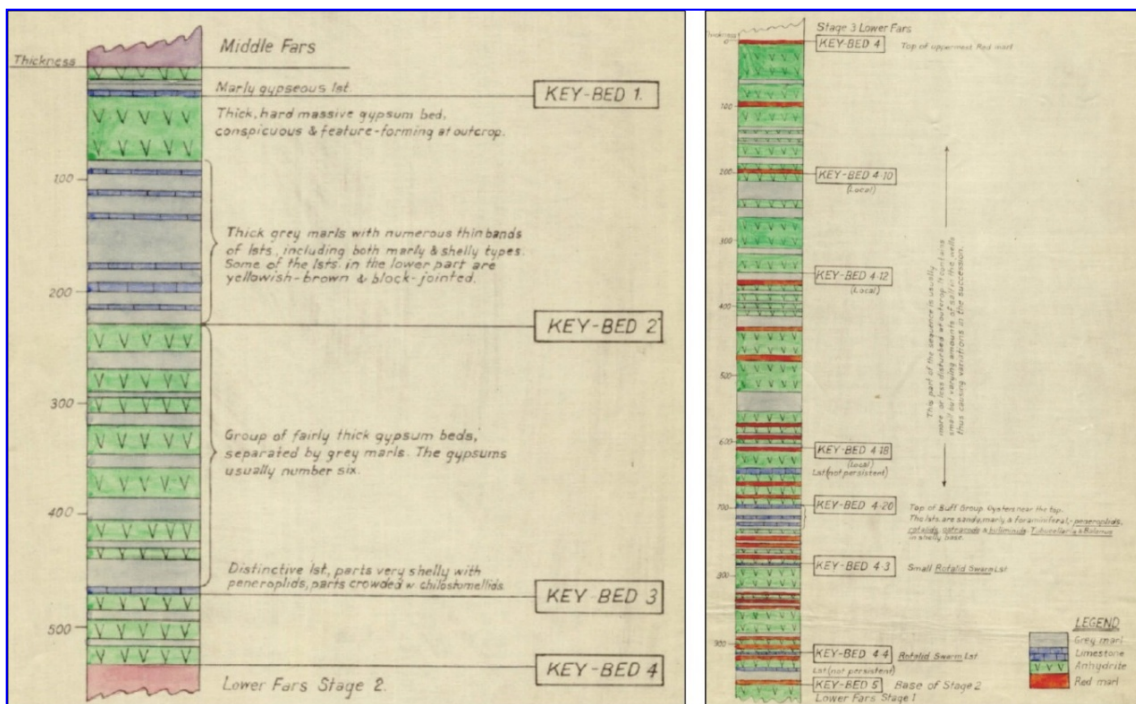 Middle Fars
Thickness
Marly gypseous lst.
KEY-BED 1.
Thick, hard massive gypsum bed,
conspicuous & feature-forming at outcrop.
100
Thick grey marls with numerous thin bands
of lsts, including both marly & shelly types.
Some of the lsts. in the lower part are
yellowish-brown & block-jointed.
200
KEY-BED 2
300
Group of fairly thick gypsum beds,
separated by grey marls. The gypsums
usually number six.
400
Distinctive lst, parts very shelly with
peneroplids, parts crowded w. chilostomellids.
KEY-BED 3
500
KEY-BED 4
Lower Fars Stage 2.
Stage 3 Lower Fars
Thickness
0
KEY-BED 4
Top of uppermost Red marl
100
200
KEY-BED 4·10
(Local)
300
KEY-BED 4·12
(Local)
400
This part of the sequence is usually
more or less disturbed at outcrop. It contains
small but varying amounts of salt in the wells
thus causing variations in the succession.
500
600
KEY-BED 4·18
(Local)
Lst (not persistent)
700
KEY-BED 4·20
Top of Buff Group. Oysters near the top.
The lsts are sandy, marly & foraminiferal,- peneroplids,
in shelly base.
800
KEY-BED 4·3
Small Rotalid Swarm Lst
900
KEY-BED 4·4
Rotalid Swarm Lst
Lst (not persistent)
KEY-BED 5
Base of Stage 2
Lower Fars Stage 1
LEGEND
Grey marl
Limestone
Anhydrite
Red marl